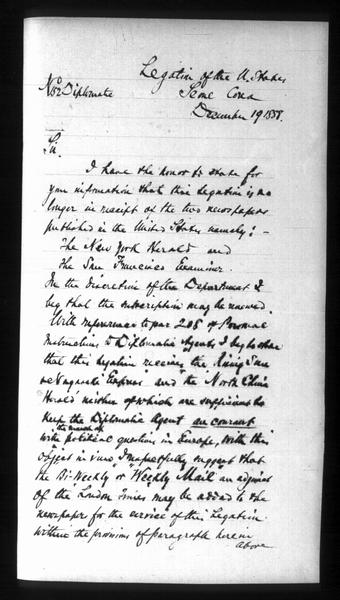 Legation of the U. States
No 52 Diplomatic Seoul Corea
December 19 1887.
Sir.
I have the honor to state for
your information that this Legation is no
longer in receipt of the two newspapers
published in the United States namely: -
The New York Herald and
The San Francisco Examiner.
In the discretion of the Department I
beg that the subscription may be renewed.
With reference to par 205 of Personal
Instructions to Diplomatic Agents, I beg to state
that this legation receives the "Rising Sun
& Nagasaki Express" and the "North China
Herald" neither of which are sufficient to
keep the Diplomatic Agent au courant
with political questions in Europe, With this
object in view I respectfully suggest that
the Bi-Weekly or "Weekly Mail" an adjunct
of the London Times may be added to the
newspaper for the service of this Legation
within the provisions of paragraph herein
above